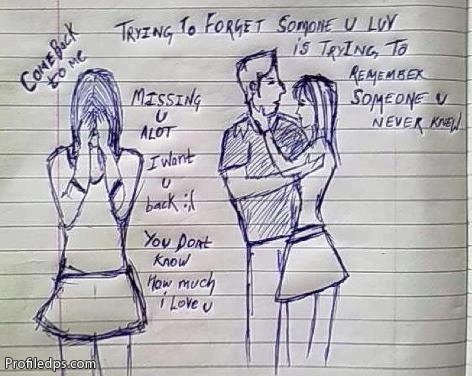 TRYING TO FORGET SOMONE U LUV
IS TRYING TO
REMEMBER
SOMEONE U
NEVER KNEW
COMEBACK
to me
MISSING
U
ALOT
I want
U
back :(
YOU DONT
KNOW
How much
i Love u
Profiledps.com